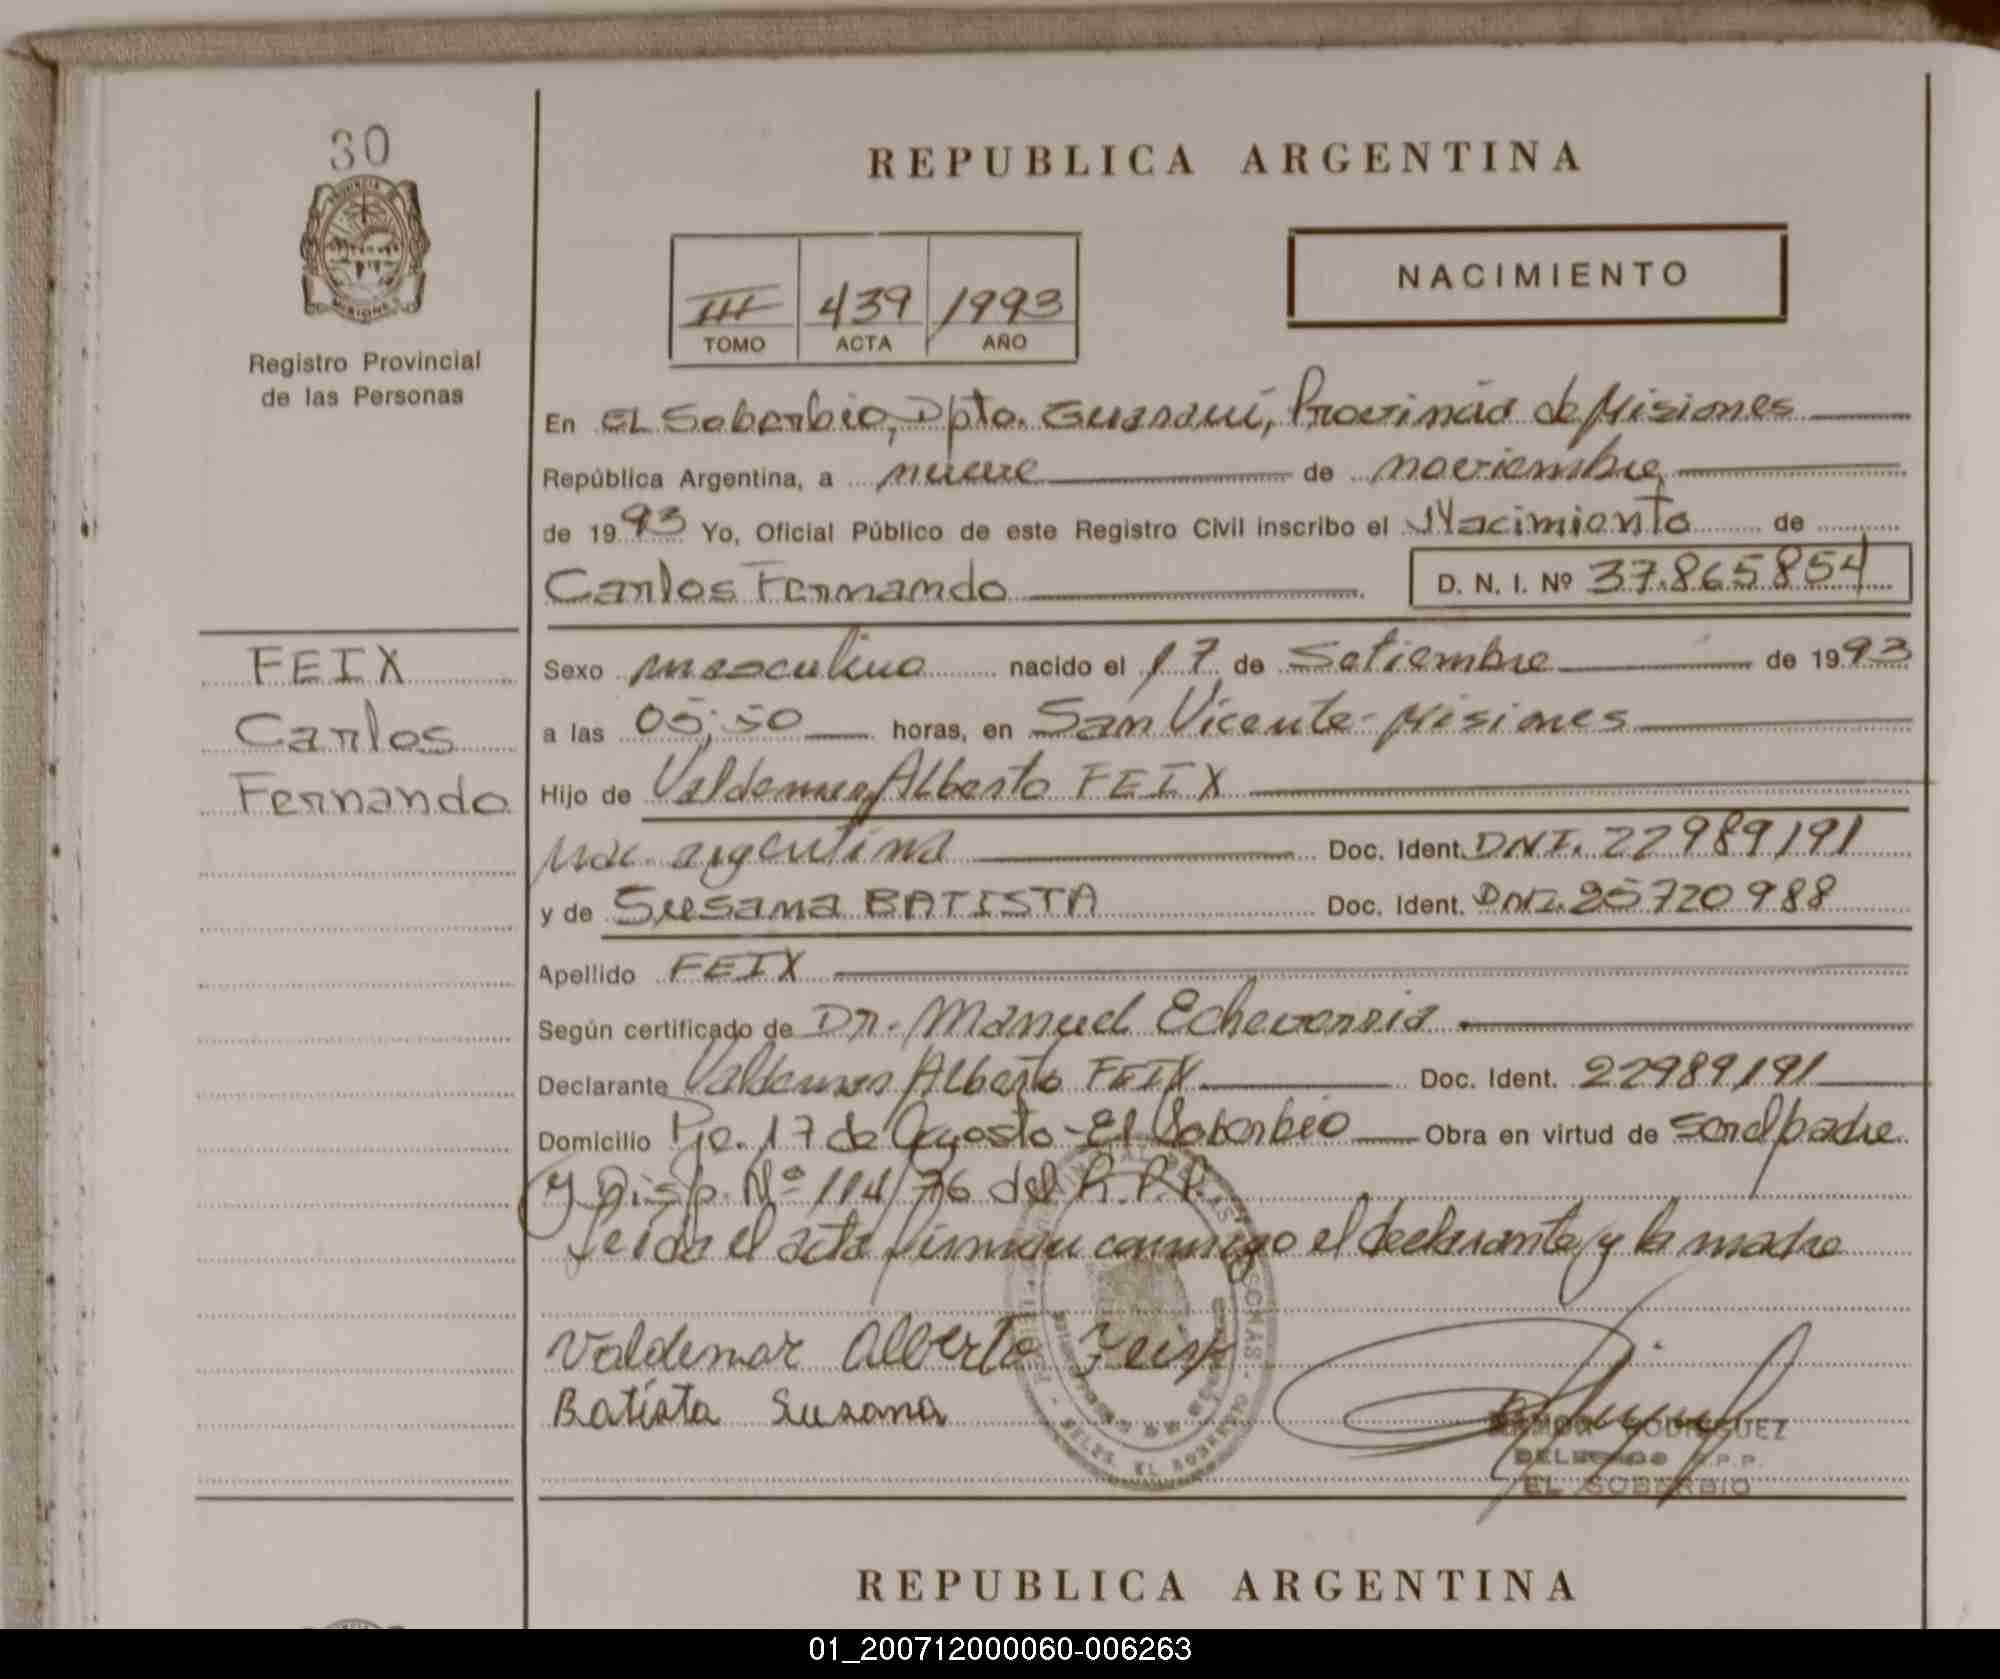 30
PROVINCIA
MISIONES
Registro Provincial
de las Personas
REPUBLICA ARGENTINA
III 439 1993
TOMO ACTA AÑO
NACIMIENTO
En EL Soberbio, Dpto. Guaraní, Provincia de Misiones
República Argentina, a nueve de noviembre
de 1993 Yo, Oficial Público de este Registro Civil inscribo el Nacimiento de
Carlos Fernando D. N. I. Nº 37.865854
FEIX
Carlos
Fernando
Sexo masculino nacido el 17 de Setiembre de 1993
a las 05;50 horas, en San Vicente-Misiones
Hijo de Valdemar Alberto FEIX
Nac. argentina Doc. Ident. DNI. 22989191
y de Susana BATISTA Doc. Ident. DNI. 25720988
Apellido FEIX
Según certificado de Dr. Manuel Echeverria
Declarante Valdemar Alberto FEIX Doc. Ident. 22989191
Domicilio Pje. 17 de Agosto-El Soberbio Obra en virtud de ser el padre
y Disp. Nº 114/76 del R.P.P.
Leida el acta firman conmigo el declarante y la madre
Valdemar Alberto Feix
Batista Susana
RAMON RODRIGUEZ
DELEGADO R.P.P.
EL SOBERBIO
REPUBLICA ARGENTINA
01_200712000060-006263